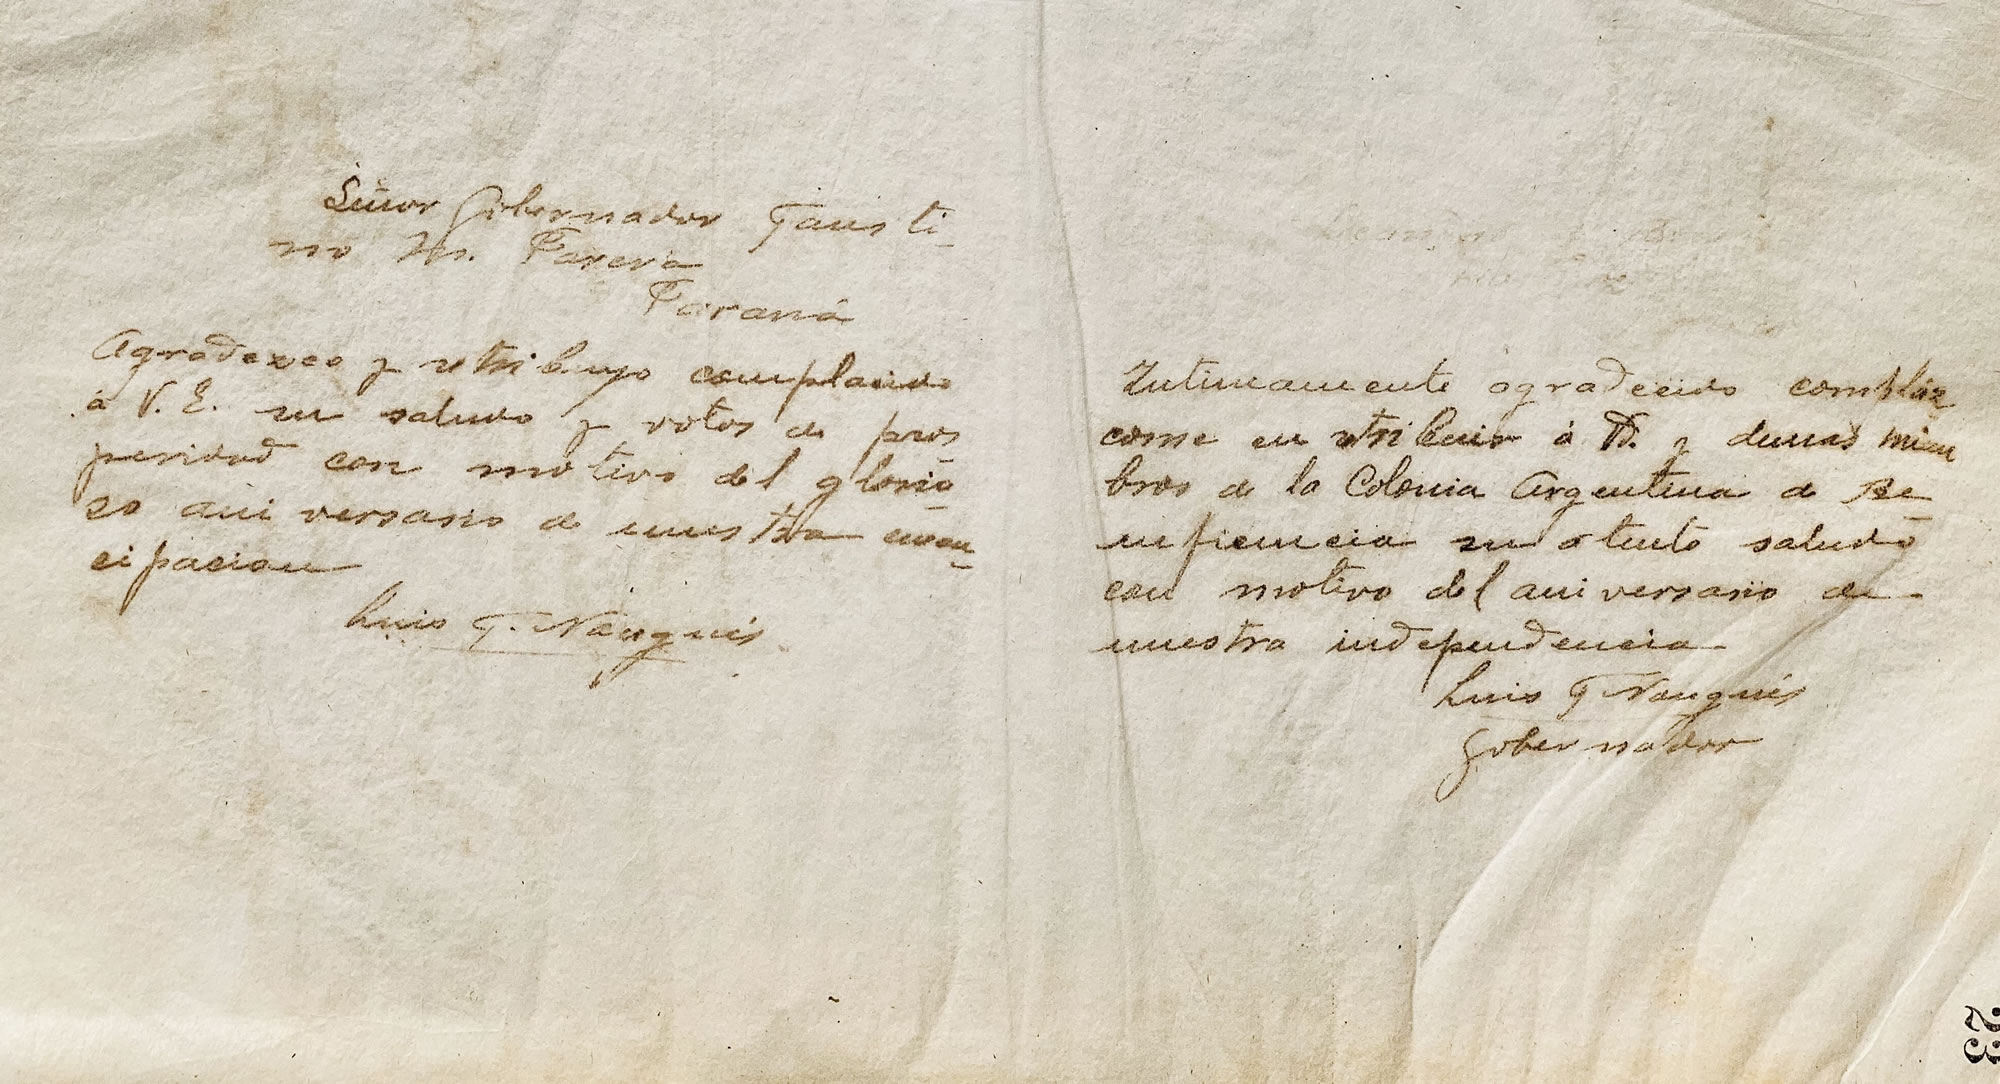 Señor Gobernador Fausti-
no M. Parera
Paraná
Agradezco y retribuyo complacido
a V. E. su saludo y votos de pros
peridad con motivo del glorio-
so aniversario de nuestra eman-
cipacion
Luis F. Nougués
Intimamente agradecido complaz
come en retribuir á Vd. y demas miem
bros de la Colonia Argentina de Be-
neficencia su atento saludo
con motivo del aniversario de
nuestra independencia
Luis F Nougués
Gobernador
23